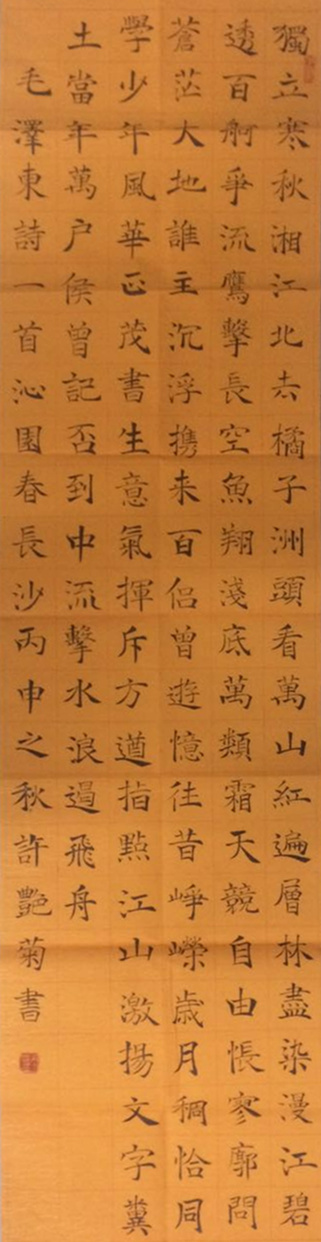 獨立寒秋湘江北去橘子洲頭看萬山紅遍層林盡染漫江碧
透百舸爭流鷹擊長空魚翔淺底萬類霜天競自由悵寥廓問
蒼茫大地誰主沉浮携来百侣曾遊憶往昔崢嶸歲月稠恰同
學少年風華正茂書生意氣揮斥方遒指點江山激揚文字糞
土當年萬户侯曾記否到中流擊水浪遏飛舟
毛澤東詩一首沁園春長沙丙申之秋許艷菊書